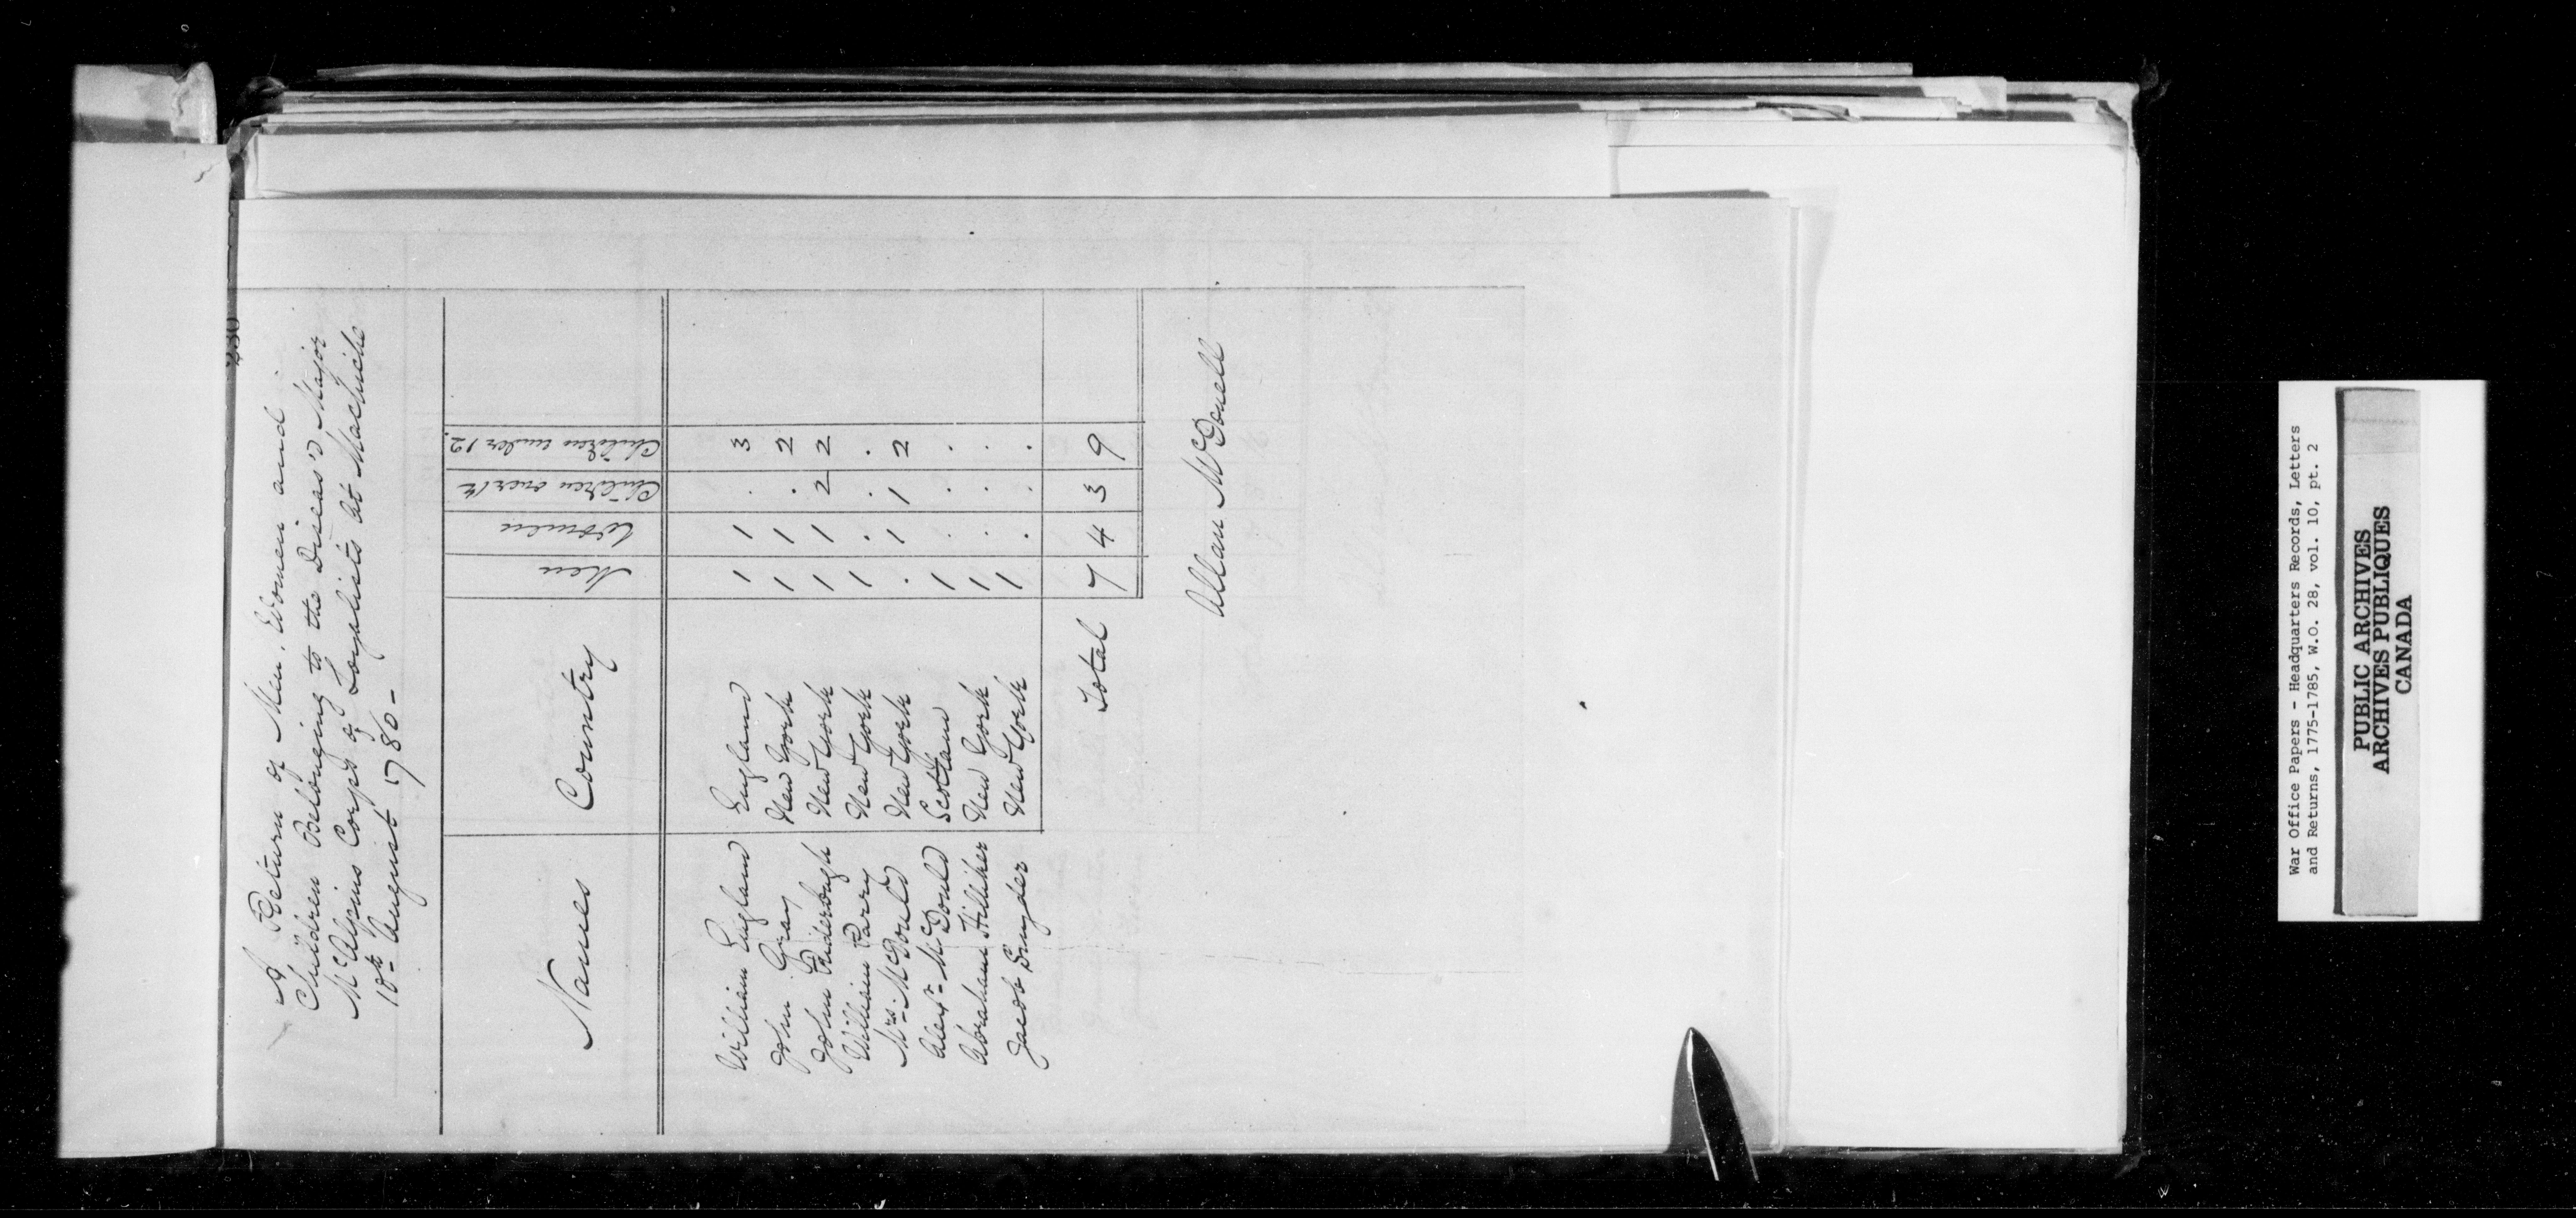 A Return of Men, Women and
Children Belonging to the Diseas'd Major
McAlpins Corps of Loyalists at Machiche
18th August 1780 -
Names Country Men Women Children over 12 Children under 12.
William England England 1 1 . 3
John Gray New York 1 1 . 2
John Friderough New York 1 1 2 2
William Parry New York 1 . . .
Mrs. McDould New York . 1 1 2
Alexr. McDould Scotland 1 . . .
Abraham Hilliker New York 1 . . .
Jacob Snyder New York 1 . . .
Total 7 4 3 9
Allan McDonell
War Office Papers - Headquarters Records, Letters
and Returns, 1775-1785, W.O. 28, vol. 10, pt. 2
PUBLIC ARCHIVES
ARCHIVES PUBLIQUES
CANADA